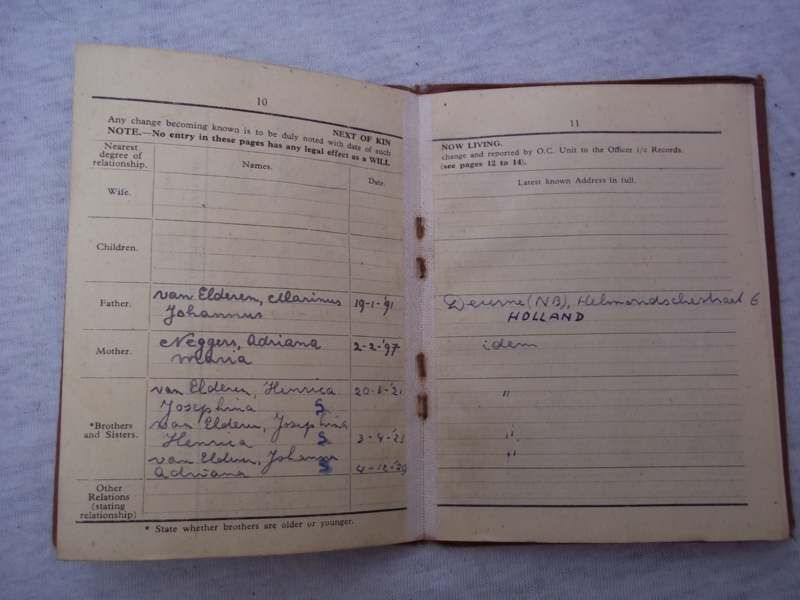 10
NEXT OF KIN
Any change becoming known is to be duly noted with date of such
NOTE.—No entry in these pages has any legal effect as a WILL
Nearest degree of relationship.
Names.
Date.
Wife.
Children.
Father.
van Elderen, Marinus
19-1-'91
Johannus
Mother.
Neggers, Adriana
2-2-'97
Maria
*Brothers and Sisters.
van Elderen, Henrica
Josephina S
van Elderen, Josephina
Henrica S
van Elderen, Johanna
Adriana S
4-12-'29
Other Relations (stating relationship)
* State whether brothers are older or younger.
11
NOW LIVING.
change and reported by O.C. Unit to the Officer i/c Records.
(see pages 12 to 14).
Latest known Address in full.
Deurne (NB), Helmondschestraat 6
HOLLAND
idem
"
"
"